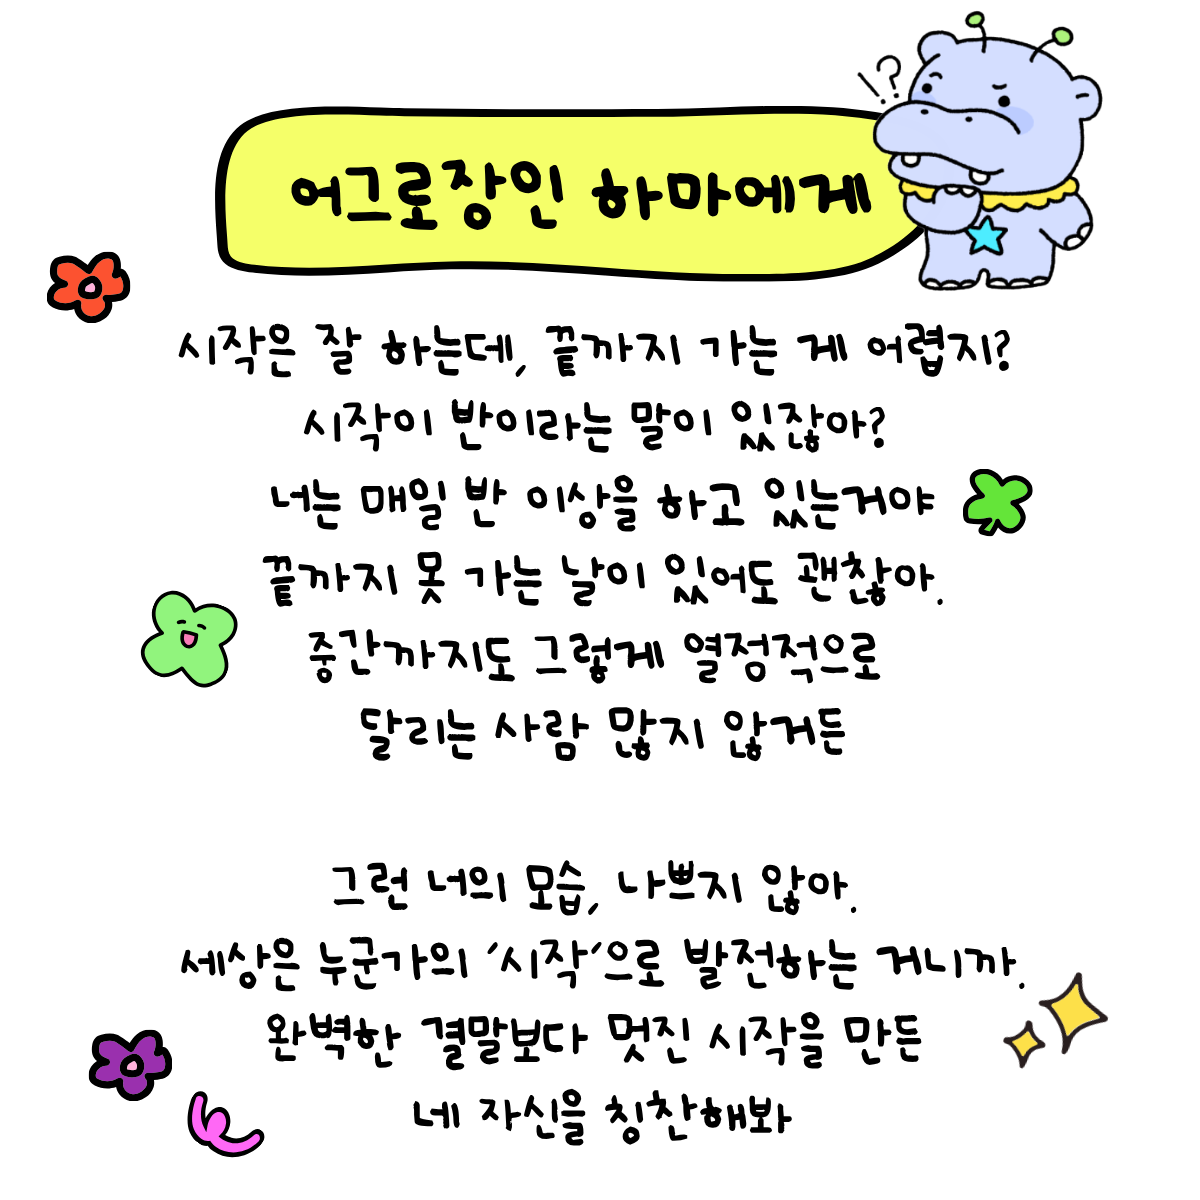 !?
어그로장인 하마에게
시작은 잘 하는데, 끝까지 가는 게 어렵지?
시작이 반이라는 말이 있잖아?
너는 매일 반 이상을 하고 있는거야
끝까지 못 가는 날이 있어도 괜찮아.
중간까지도 그렇게 열정적으로
달리는 사람 많지 않거든
그런 너의 모습, 나쁘지 않아.
세상은 누군가의 '시작'으로 발전하는 거니까.
완벽한 결말보다 멋진 시작을 만든
네 자신을 칭찬해봐